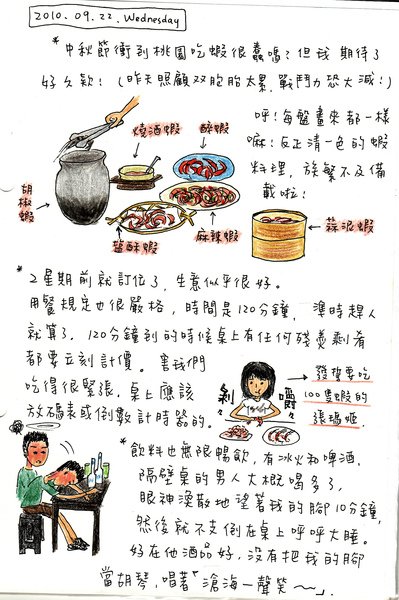 2010.09.22.Wednesday
*中秋節衝到桃園吃蝦很蠢嗎?但我期待了
好久欸!(昨天照顧双胞胎太累,戰鬥力恐大減!)
呼!每盤畫來都一樣
嘛!反正清一色的蝦
料理,族繁不及備
載啦!
燒酒蝦
醉蝦
胡椒蝦
鹽酥蝦
麻辣蝦
蒜泥蝦
*2星期前就訂位了,生意似乎很好。
用餐規定也很嚴格,時間是120分鐘,準時趕人
就算了,120分鐘到的時候桌上有任何殘羹剩肴
都要立刻計價。害我們
吃得很緊張,桌上應該
放碼表或倒數計時器的。
剝
嚼
發誓要吃
100隻蝦的
張瑪姬
*飲料也無限暢飲,有冰火和啤酒,
隔壁桌的男人大概喝多了,
眼神渙散地望著我的腳10分鐘,
然後就不支倒在桌上呼呼大睡。
好在他酒品好,沒有把我的腳
當胡琴,唱著「滄海一聲笑~」。